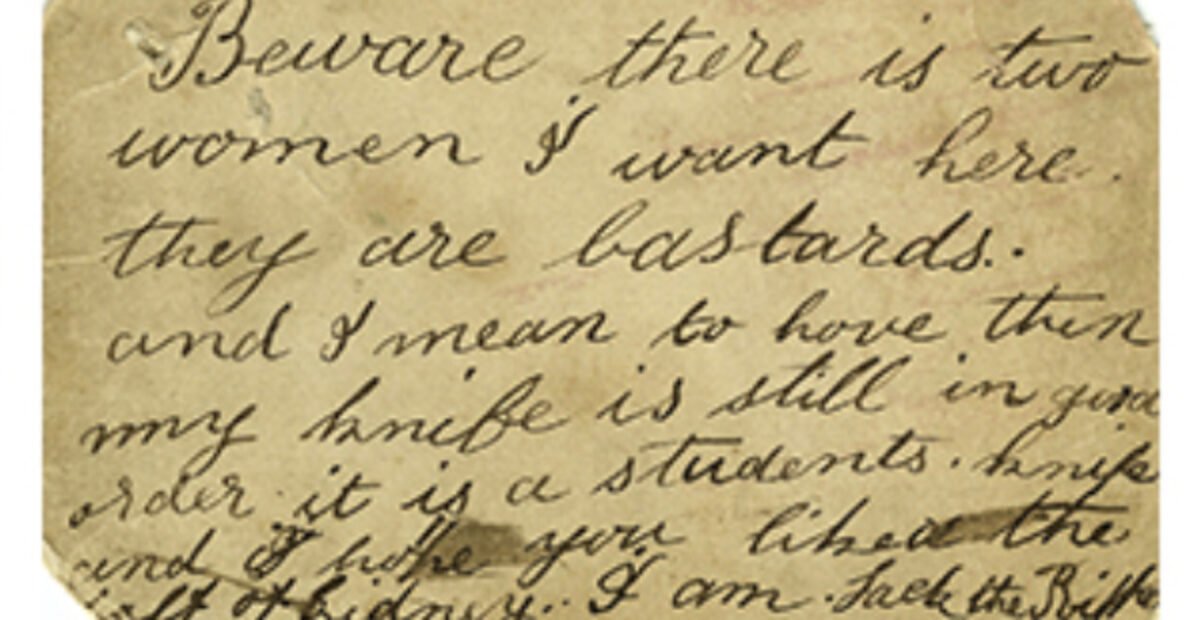 Beware there is two
women I want here.
they are bastards.
and I mean to have them
my knife is still in good
order it is a students. knife
and I hope you liked the
half of kidney.. I am. Jack the Ripper